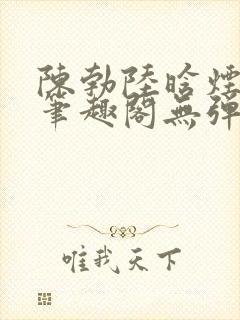 陳勃陸晗煙
筆趣閣無彈
唯我天下